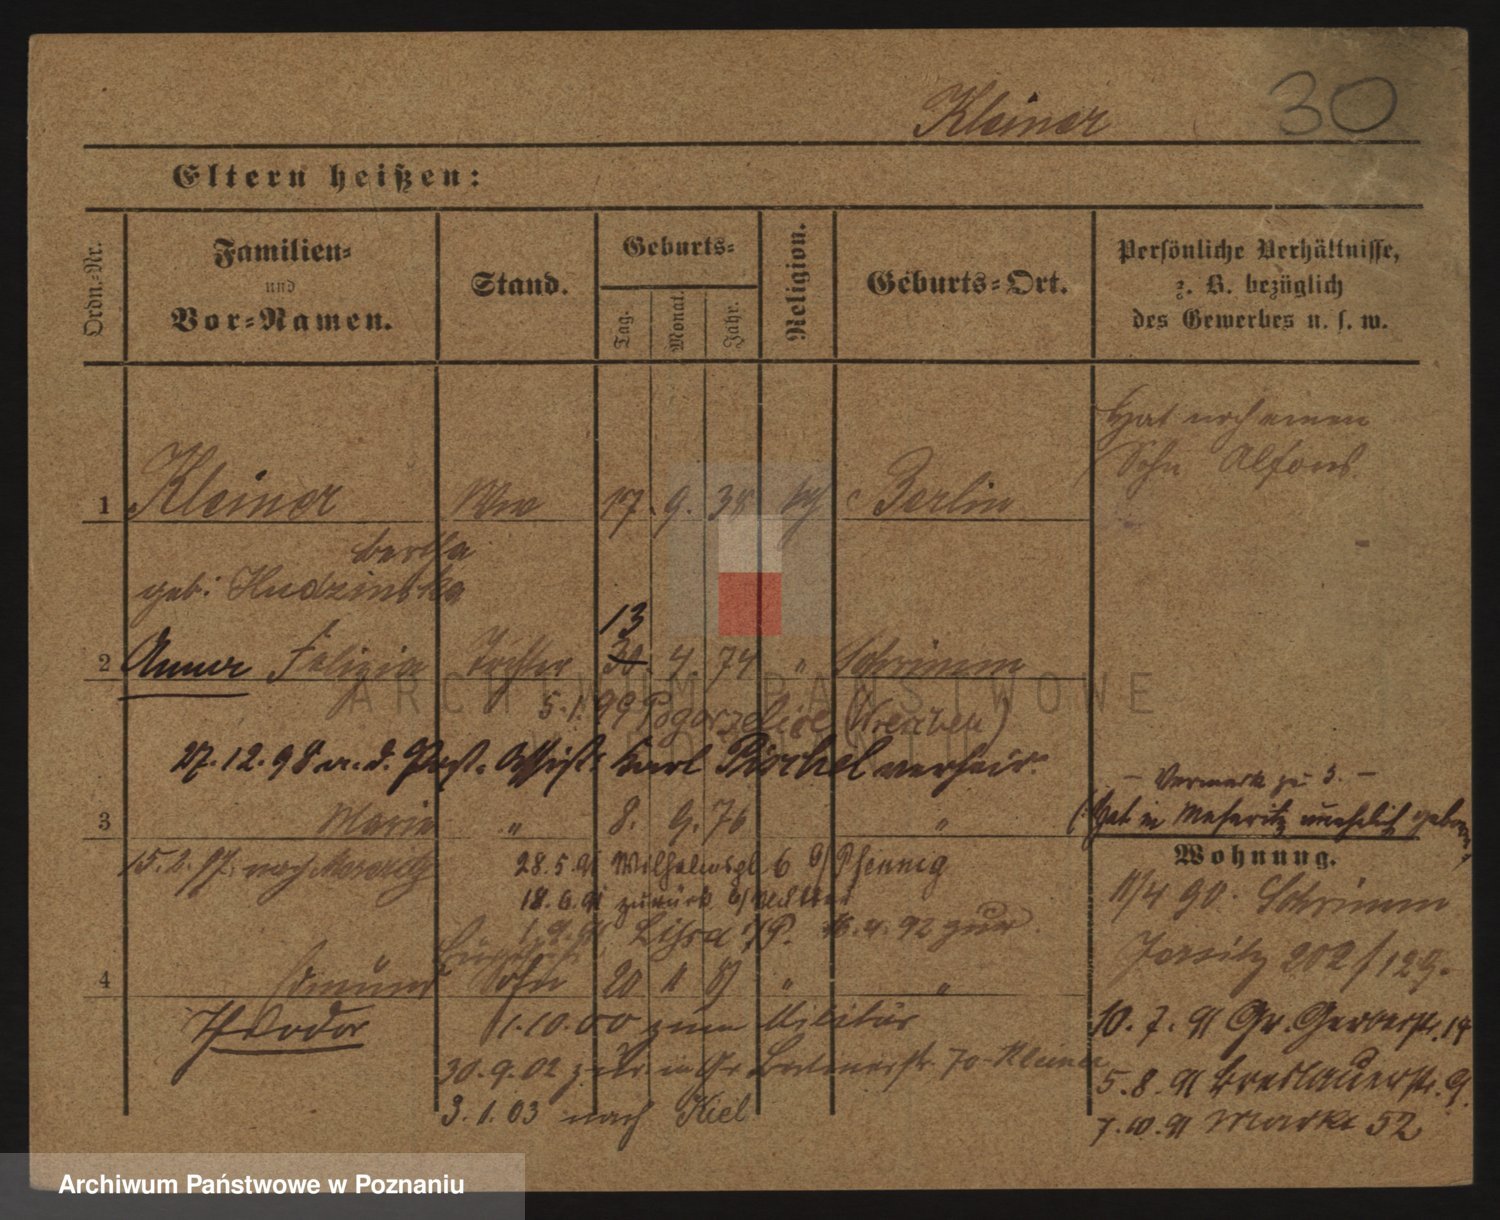 Kleiner 30
Eltern heißen:
Ordn.-Nr.
Familien-
und
Vor-Namen.
Stand.
Geburts-
Tag.
Monat.
Jahr.
Religion.
Geburts-Ort.
Persönliche Verhältnisse,
z. B. bezüglich
des Gewerbes u. s. w.
Hat noch einen
Sohn Alfons.
1 Kleiner Ww 17. 9. 38 Berlin
Bertha
geb: Hudzinska
13
2 Felizia Tochter 30. 4. 74 " Schrimm
5.1.99 Pogorzelice (Wreschen)
27.12.98 m. d. Post-Assist. Karl verheir.
– Vermerk zu 3. –
3 Marie " 8. 9. 76 "
(hat in Meseritz unehelich geboren)
Wohnung.
15.2.97. nach Meseritz 28.5.91 Wilhelmspl 6 b/ Pfennig
18.6.91 zurück b/ Mutter
11/4 90. Schrimm
1.9.91 16.4.92 zur
Jersitz 202/129.
4 Edmund Sohn 20 11 81 " "
Theodor 1.10.00 zum Militär
10.7.91 Gr. Gerberstr. 14
30.9.02 zur. Kleiner
5.8.91 Breslauerstr. 9.
3.1.03 nach Kiel
7.10.91 Markt 52
ARCHIWUM PAŃSTWOWE
W POZNANIU
Archiwum Państwowe w Poznaniu